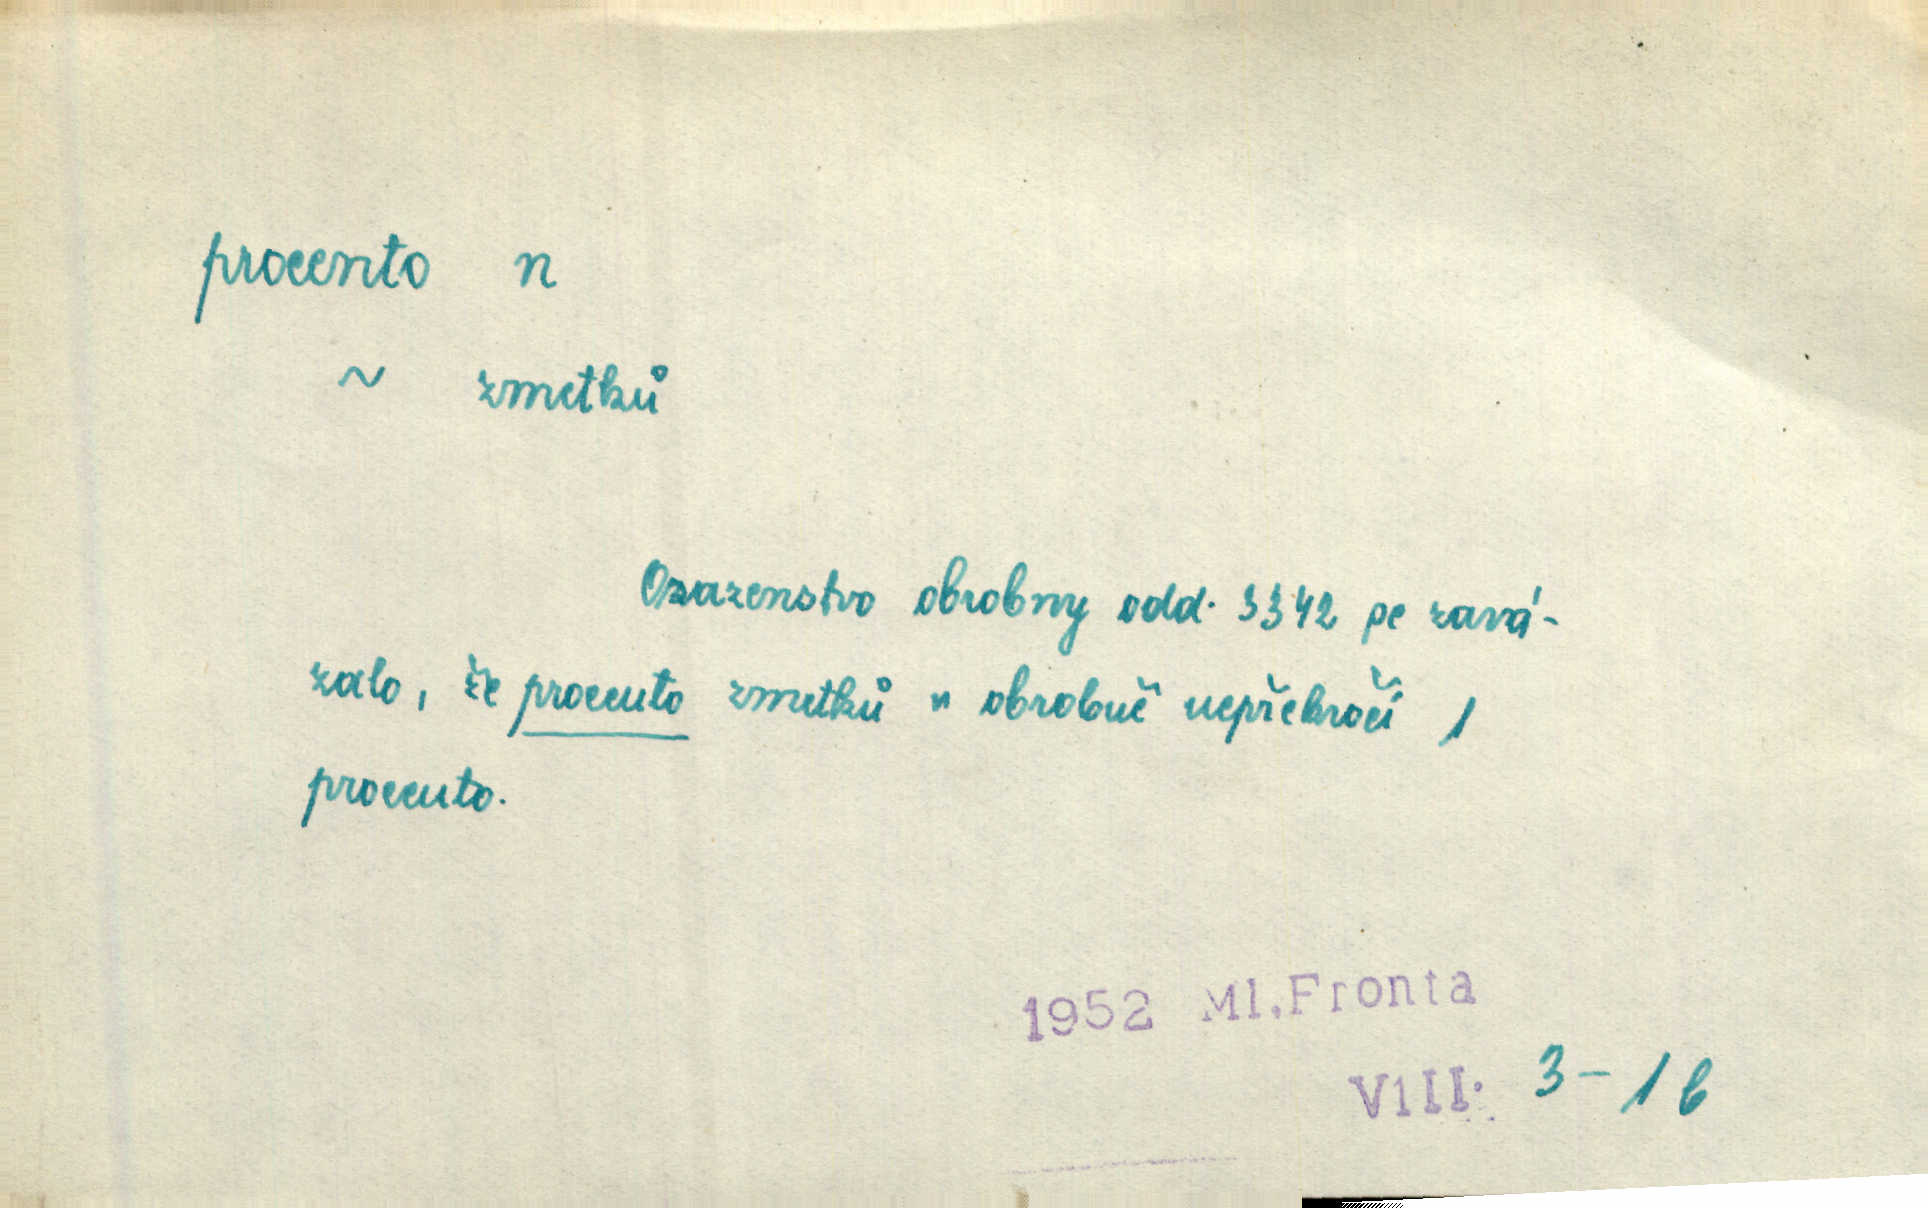 procento n
~ zmetků
Osazenstvo obrobny odd. 3342 se zavá-
zalo, že procento zmetků v obrobně nepřekročí 1
procento.
1952 Ml.Fronta
VIII. 3-1b